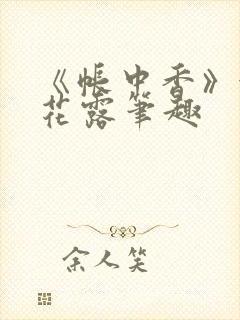 《帐中香》
花露笔趣
余人笑